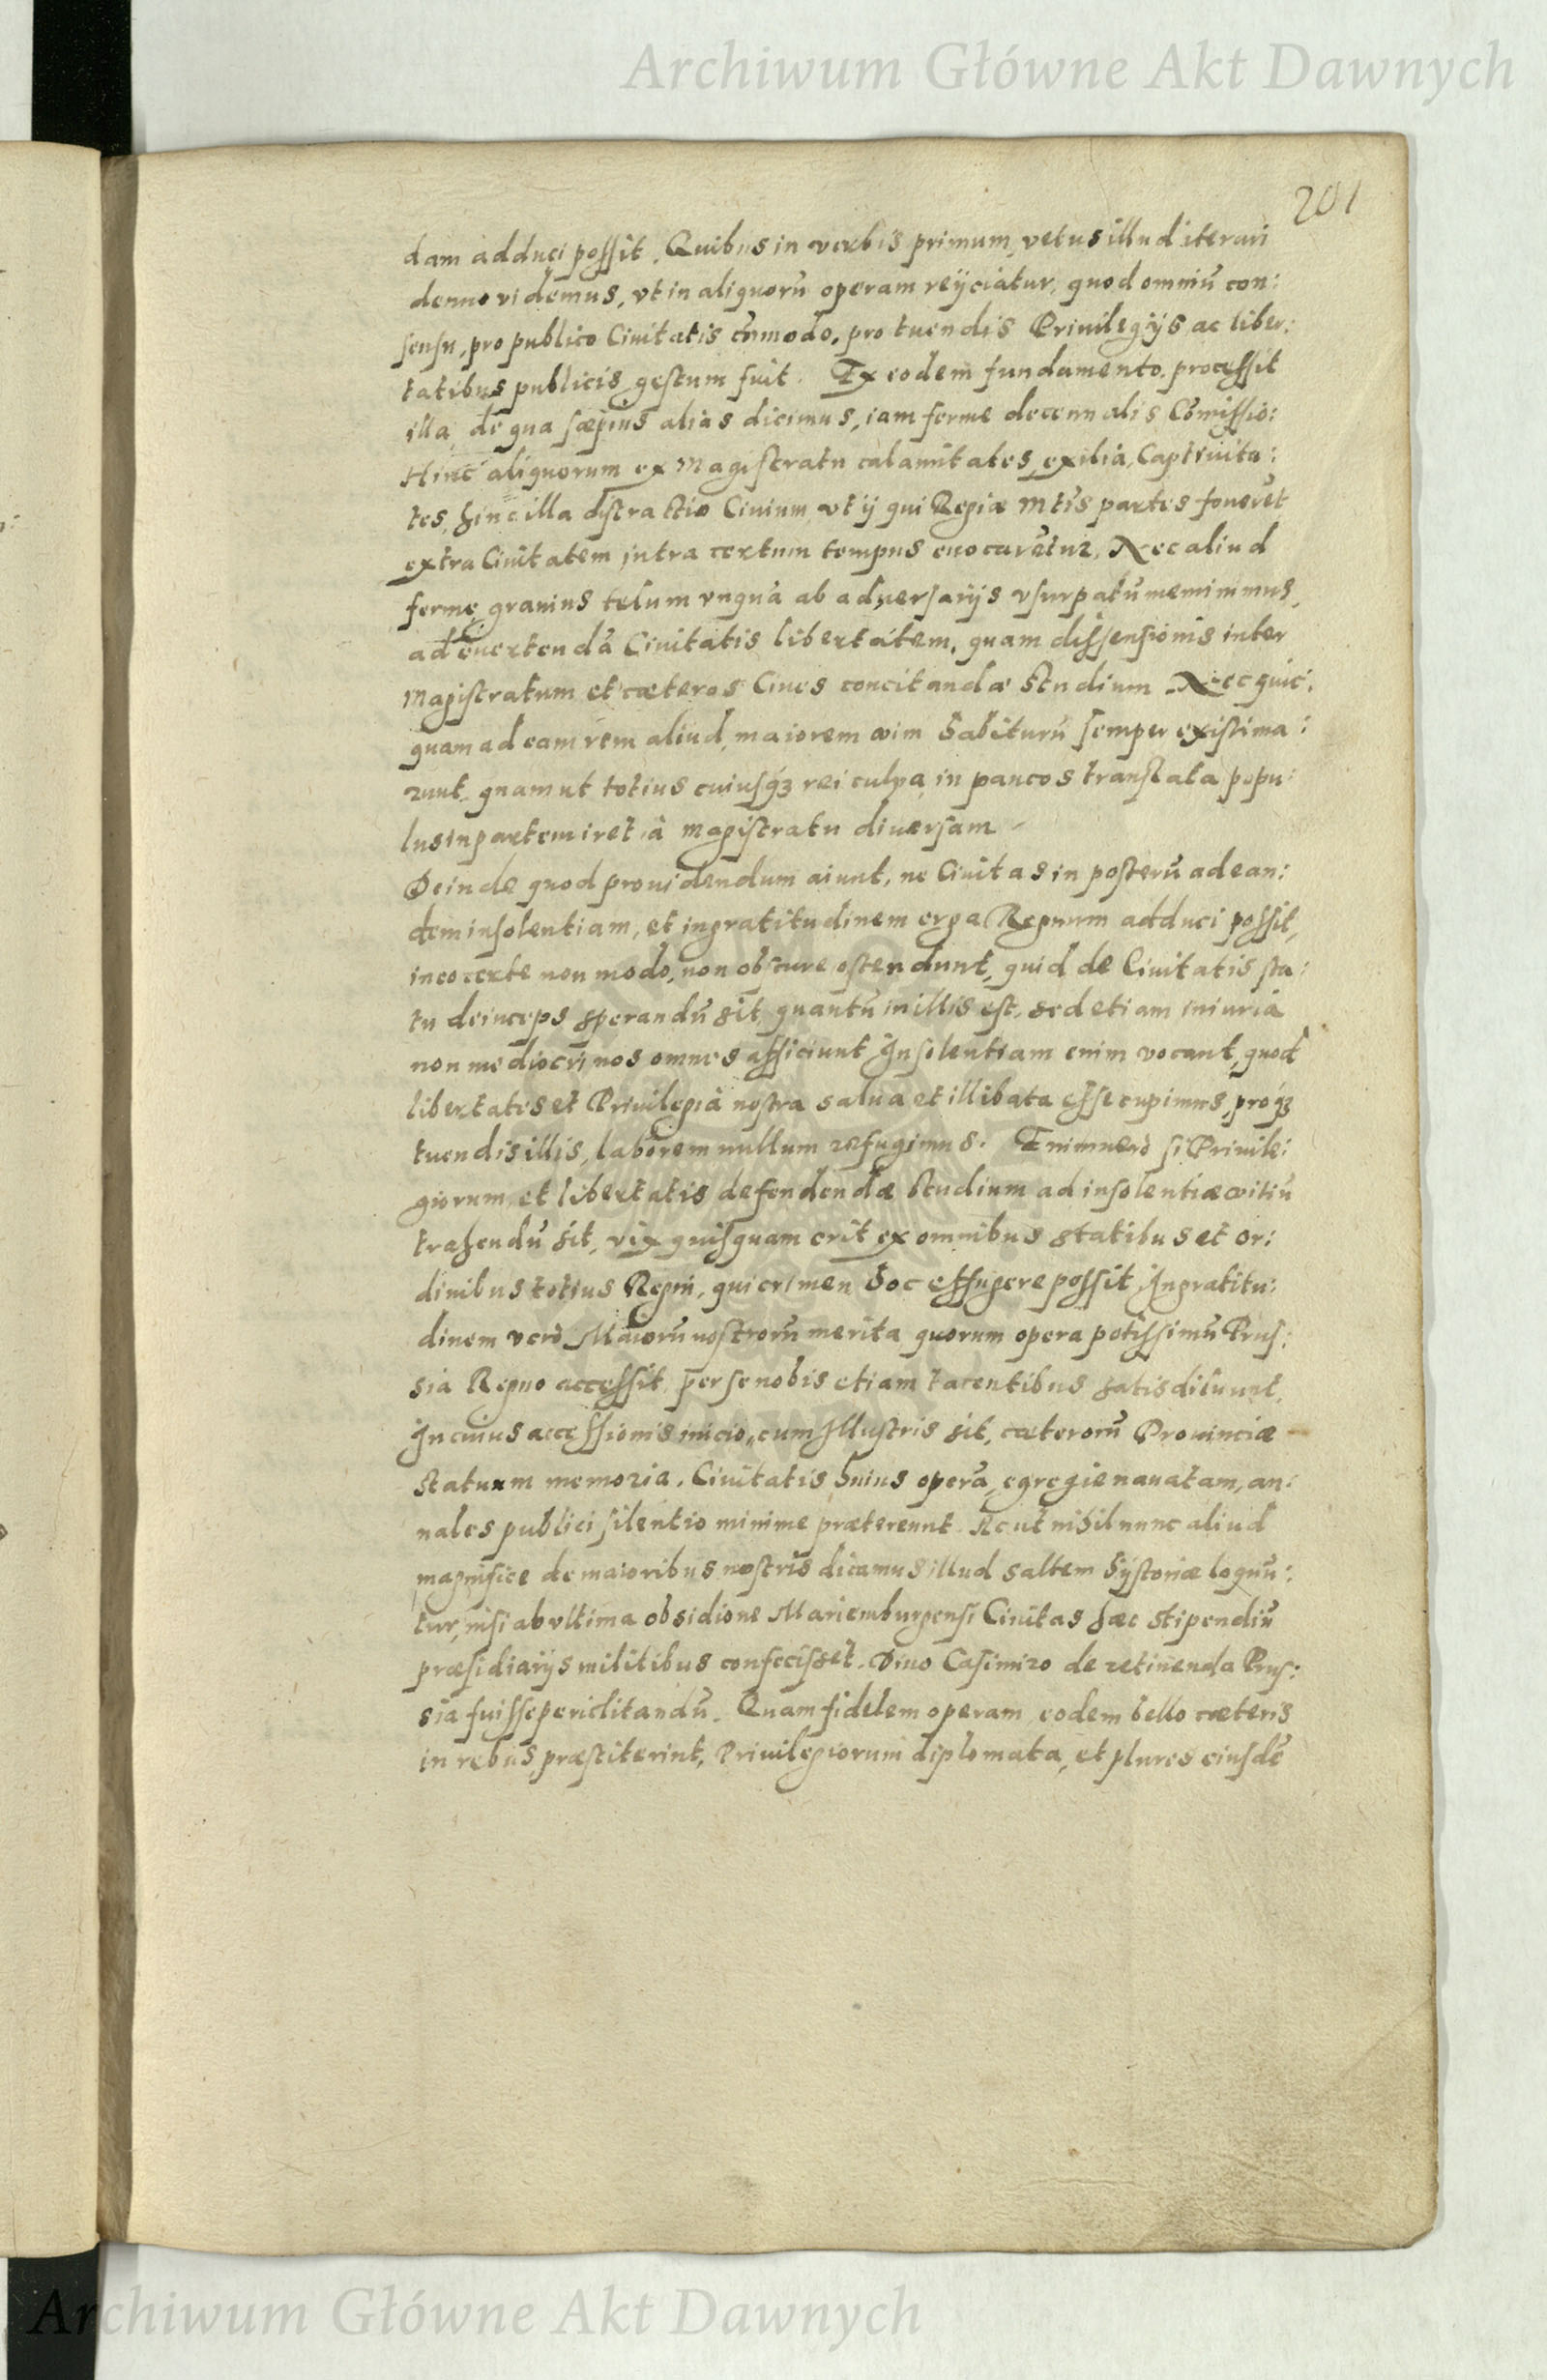 Archiwum Główne Akt Dawnych
201
dam adduci possit. Quibus in verbis primum, vetus illud iterari
denuo videmus, vt in aliquorũ operam reijciatur, quod omniũ con:
sensu, pro publico Ciuitatis cõmodo, pro tuendis Priuilegijs ac liber:
tatibus publicis gestum fuit. Ex eodem fundamento processit
illa, de qua sæpius alias dicimus, iam ferme decennalis Cõmissio:
Hinc aliquorum ex Magistratu calamitates, exilia, Captiuita:
tes, hinc illa distractio Ciuium, vt ij qui Regiæ Mtis partes fouerẽt
extra Ciuitatem intra certum tempus euocarẽtur, Nec aliud
ferme grauius telum vnquã ab aduersarijs vsurpatũ meminimus,
ad euertendã Ciuitatis libertatem, quam dissensionis inter
Magistratum et cæteros Ciues concitandæ studium. Nec quic:
quam ad eam rem aliud, maiorem vim habiturũ semper existima:
runt quam ut totius cuiusqȝ rei culpa in paucos translata popu:
lus in partem iret à Magistratu diuersam
Deinde quod prouidendum aiunt, ne Ciuitas in posterũ ad ean:
dem insolentiam, et ingratitudinem erga Regnum adduci possit,
in eo certe non modo, non obscure ostendunt, quid de Ciuitatis sta:
tu deinceps sperandũ sit, quantũ in illis est, sed etiam iniuria
non mediocri nos omnes afficiunt Insolentiam enim vocant, quod
libertates et Priuilegia nostra salua et illibata esse cupimus, proqȝ
tuendis illis, laborem nullum refugimus. Enimuero si Priuile:
giorum et libertatis defendendæ studium ad insolentiæ vitiũ
trahendũ sit, vix quisquam erit ex omnibus statibus et or:
dinibus totius Regni, qui crimen hoc effugere possit Ingratitu:
dinem vero Maiorũ nostrorũ merita quorum opera potissimũ Prus:
sia Regno accessit, per se nobis etiam tacentibus satis diluunt,
In cuius accessionis inicio, cum Illustris sit, cæterorũ Prouinciæ
statuum memoria, Ciuitatis huius operã, egregie nauatam, an:
nales publici silentio minime prætereunt. Ac ut nihil nunc aliud
magnifice de maioribus nostris dicamus illud saltem hystoriæ loquũ:
tur, nisi ab vltima obsidione Mariemburgensi Ciuitas hæc stipendiũ
præsidiarijs militibus confecisset, Diuo Casimiro de retinenda Prus:
sia fuisse periclitandũ. Quam fidelem operam eodem bello cæteris
in rebus, præstiterint, Priuilegiorum diplomata, et plures eiusdẽ
Archiwum Główne Akt Dawnych